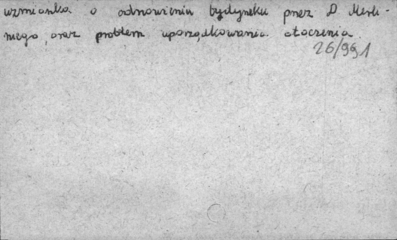 wzmianka o odnowieniu bydyneku przez D. Merli-
niego, oraz problem uporządkowania otoczenia.
26/991